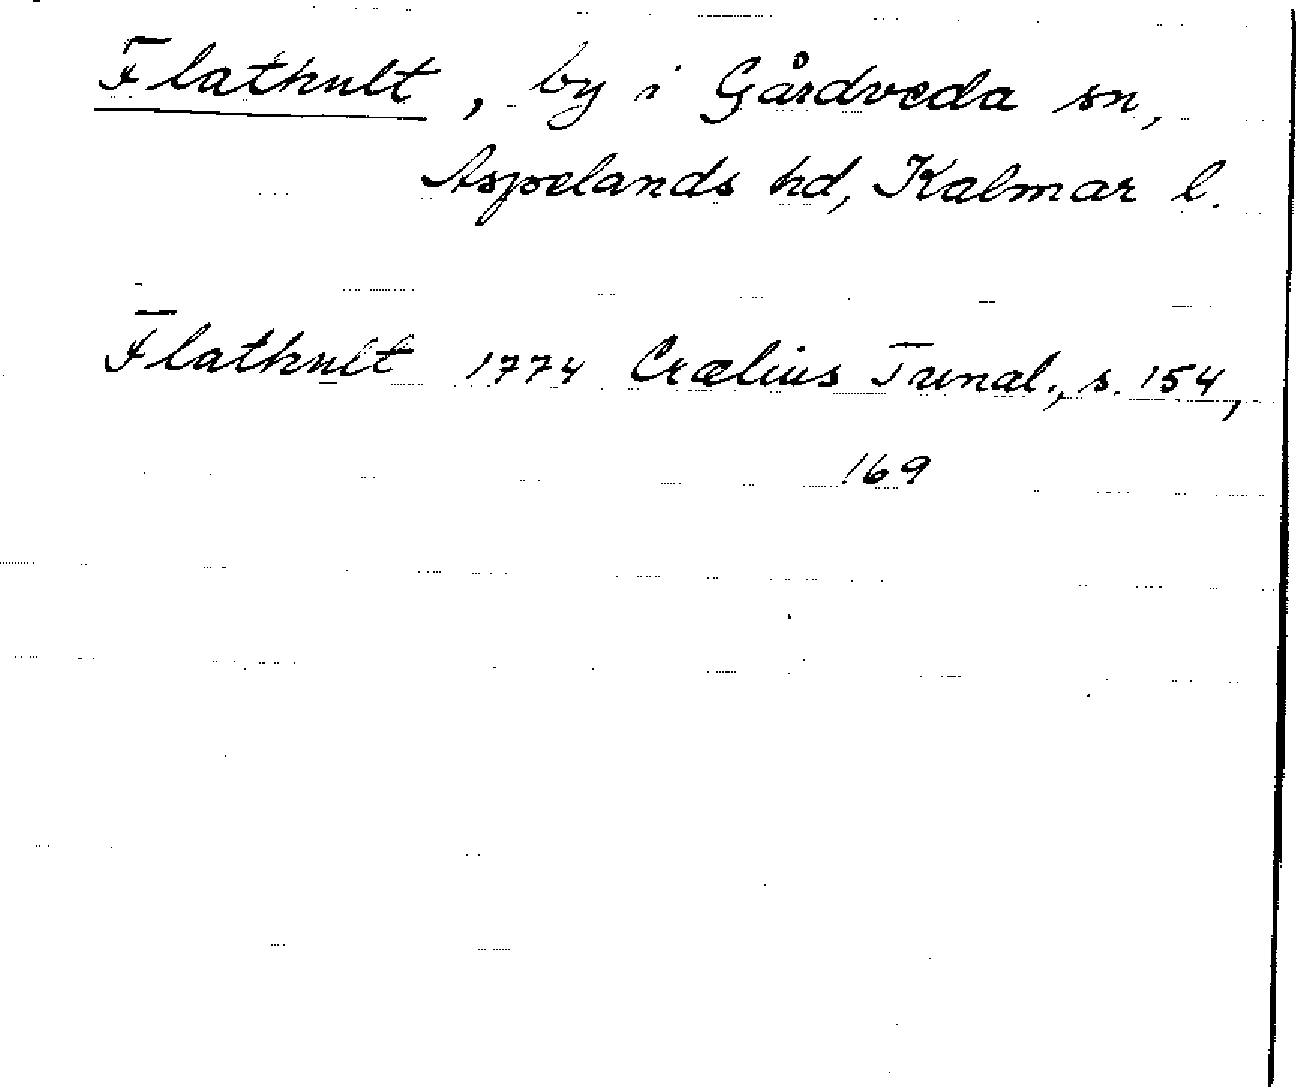 Flathult, by i Gårdveda sn,
Aspelands hd, Kalmar l.
Flathult 1774 Crælius Tunal., s. 154,
169